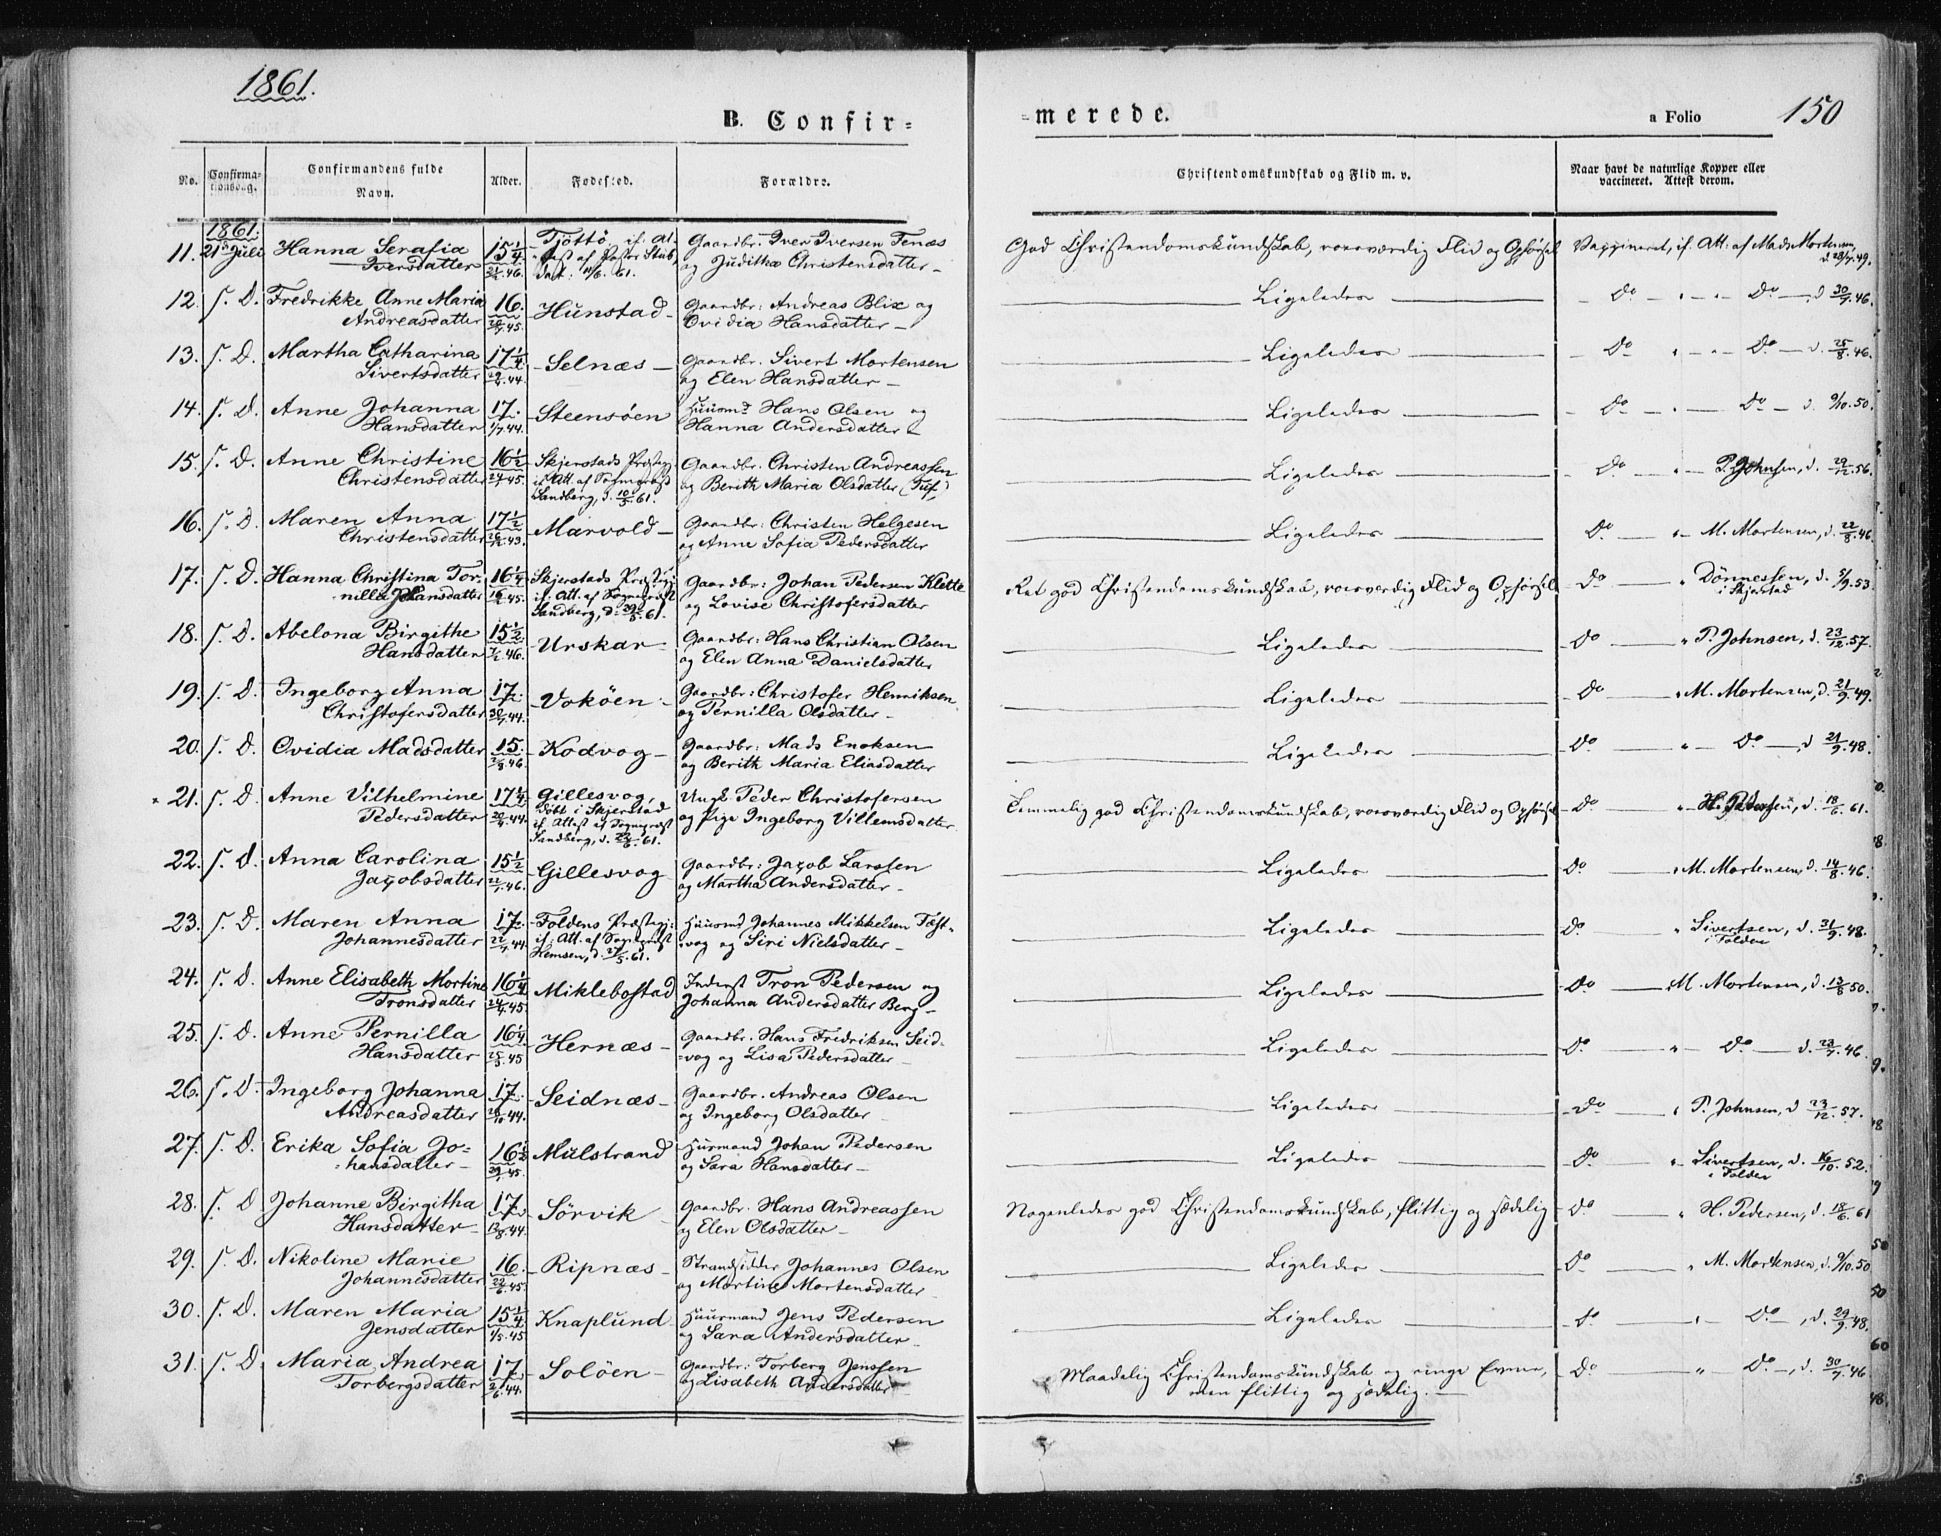 1861.
B. Confir=
=merede.
a Folio 150
No.
Confirma-
tionsdag.
Confirmandens fulde
Navn.
Alder.
Fødested.
Forældre.
Christendomskundskab og Flid m. v.
Naar havt de naturlige Kopper eller
vaccineret. Attest derom.
1861.
11. 21 Juli Hanna Serafia Iversdatter 15 1/4 21/2.46. Tjöttö, if. At- test af Pastor Stub, dat. 11/6. 61. Gaardbr. Iver Iversen Tenæs og Judithæ Christensdatter – God Christendomskundskab, roesværdig Flid og Opførsel Vaccineret, if. Att. af Mads Mortensen, d. 28/7.49.
12. s. D. Fredrikke Anne Maria Andreasdatter 16. Hunstad – Gaardbr: Andreas Blix og Ovidia Hansdatter – Ligeledes Do – " – Do – d. 30/7.46.
13. s. D. Martha Catharina Sivertsdatter 17 1/4 – Selnæs – Gaardbr. Sivert Mortensen og Elen Hansdatter – Ligeledes Do " – Do – d. 25/8.46.
14. s. D. Anne Johanna Hansdatter 17. 1/7.44. – Steensöen Huusmd Hans Olsen og Hanna Andersdatter – Ligeledes – Do – " – Do – d. 9/10.50.
15. s. D. Anne Christine Christensdatter 16 1/2 Skjerstads Præstegj: if. Att. af Sognepræst Sandberg, d. 10/5.61. Gaardbr. Christen Andreassen og Berith Maria Olsdatter Ligeledes Do " – P. Johnsen, d. 29/12.56.
16. s. D. Maren Anna Christensdatter 17 1/2 – Marvold – Gaardbr: Christen Helgesen og Anne Sofia Pedersdatter Ligeledes Do " – M. Mortensen, d. 22/8.46.
17. s. D. Hanna Christina Tor- nilla Johansdatter 16 1/4 Skjerstads Præstegj: if. Att. af Sognepræst Sandberg, d. 29/5.61. Gaardbr: Johan Pedersen Klette og Lovise Christofersdatter Ret god Christendomskundskab, roesværdig Flid og Opførsel Do " Dönnessen, i Skjerstad d. 5/9.53.
18. s. D. Abelona Birgithe Hansdatter 15 1/2 – Urskar – Gaardbr: Hans Christian Olsen og Elen Anna Danielsdatter Ligeledes Do " P. Johnsen, d. 23/12.57.
19. s. D. Ingeborg Anna Christofersdatter 17. – Voköen – Gaardbr: Christofer Henriksen og Pernilla Olsdatter – Ligeledes Do " M. Mortensen, d. 21/9.49.
20. s. D. Ovidia Madsdatter 15. – Kodvog – Gaardbr: Mads Enoksen og Berith Maria Eliasdatter Ligeledes Do " – Do –, d. 21/9.48.
21. s. D. Anne Vilhelmine Pedersdatter 17 1/4 Gillesvog, döbt i Skjerstad if. Attest af Sognepræst Sandberg, d. Ungk. Peder Christofersen og Pige Ingeborg Villemsdatter Temmelig god Christendomskundskab, roesværdig Flid og Opførsel Do " H. Pedersen, d. 18/6.61.
22. s. D. Anna Carolina Jacobsdatter 15 1/2 22/1.46. – Gillesvog Gaardbr: Jacob Larssen og Martha Andersdatter – Ligeledes Do " M. Mortensen, d. 14/8.46.
23. s. D. Maren Anna Johannesdatter 17. – Foldens Præstegj: if. Att. af Sognepræst Hemsen, d. Huusmd Johannes Mikkelsen Fæst- vog og Siri Nielsdatter – Ligeledes Do " Sivertsen, i Folden d. 31/9.48.
24. s. D. Anne Elisabeth Mortine Tronsdatter 16 1/4 – Miklebostad Inderst Tron Pedersen og Johanna Andersdatter Berg – Ligeledes – Do M. Mortensen, d. 13/8.50.
25. s. D. Anne Pernilla Hansdatter 16 1/4 – Hernæs – Gaardbr. Hans Fredriksen Seid- vog og Lisa Pedersdatter – Ligeledes Do " – Do – d. 23/7.46.
26. s. D. Ingeborg Johanna Andreasdatter 17. – Seidnæs – Gaardbr. Andreas Olsen og Ingeborg Olsdatter – Ligeledes – Do " P. Johnsen, d. 23/12.57.
27. s. D. Erika Sofia Jo= =hansdatter – 16 1/2 – Mulstrand Huusmand Johan Pedersen og Sara Hansdatter – Ligeledes – Do " Sivertsen, i Folden d. 16/10.52.
28. s. D. Johanne Birgitha Hansdatter – 17. 13/8.44. – Sörvik – Gaardbr. Hans Andreassen og Elen Olsdatter – Nogenledes god Christendomskundskab, flittig og sædelig – Do " H. Pedersen, d. 18/6.61
29. s. D. Nikoline Marie Johannesdatter 16. 22/6.45. – Ripnæs – Strandsidder Johannes Olsen og Martine Mortensdatter – Ligeledes – Do " M. Mortensen, d. 9/10.50
30. s. D. Maren Maria Jensdatter 15 1/4 1/5.45 – Knaplund – Huusmand Jens Pedersen og Sara Andersdatter – Ligeledes – Do " – Do –, d. 29/9.48.
31. s. D. Maria Andrea Torbergsdatter 17. – Solöen – Gaardbr: Torberg Jenssen og Lisabeth Andersdatter Maadelig Christendomskundskab og ringe Evner, men flittig og sædelig. – Do " – Do –, d. 30/7.46